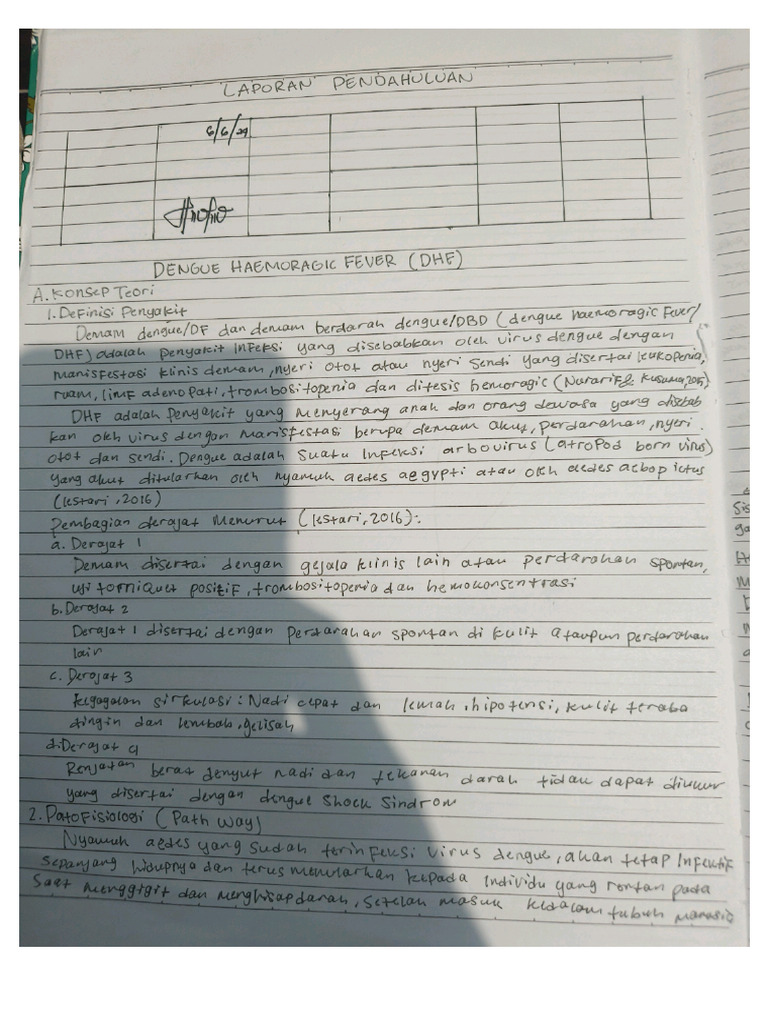 LAPORAN PENDAHULUAN
6/6/24
DENGUE HAEMORAGIC FEVER (DHF)
A. Konsep Teori
1. Definisi Penyakit
Demam dengue/DF dan demam berdarah dengue/DBD (dengue haemoragic Fever/
DHF) adalah penyakit infeksi yang disebabkan oleh virus dengue dengan
manisfestasi klinis demam, nyeri otot atau nyeri sendi yang disertai leukopenia,
ruam, limfadenopati, trombositopenia dan ditesis hemoragic (Nurarif & Kusuma, 2015)
DHF adalah penyakit yang menyerang anak dan orang dewasa yang disebab
kan oleh virus dengan manisfestasi berupa demam akut, perdarahan, nyeri
otot dan sendi. Dengue adalah suatu infeksi arbovirus (atropod born virus)
yang akut ditularkan oleh nyamuk aedes aegypti atau oleh aedes aebopictus
(lestari, 2016)
Pembagian derajat menurut (lestari, 2016):
a. Derajat 1
Demam disertai dengan gejala klinis lain atau perdarahan spontan,
uji torniquet positif, trombositopenia dan hemokonsentrasi
b. Derajat 2
Derajat 1 disertai dengan perdarahan spontan di kulit ataupun perdarahan
lain
c. Derajat 3
kegagalan sirkulasi: Nadi cepat dan lemah, hipotensi, kulit teraba
dingin dan lembab, gelisah
d. Derajat 4
Renjatan berat denyut nadi dan tekanan darah tidak dapat diukur
yang disertai dengan dengue shock sindrom
2. Patofisiologi (Path Way)
Nyamuk aedes yang sudah terinfeksi virus dengue, akan tetap infektif
sepanjang hidupnya dan terus menularkan kepada individu yang rentan pada
saat menggigit dan menghisap darah, setelah masuk kedalam tubuh manusia